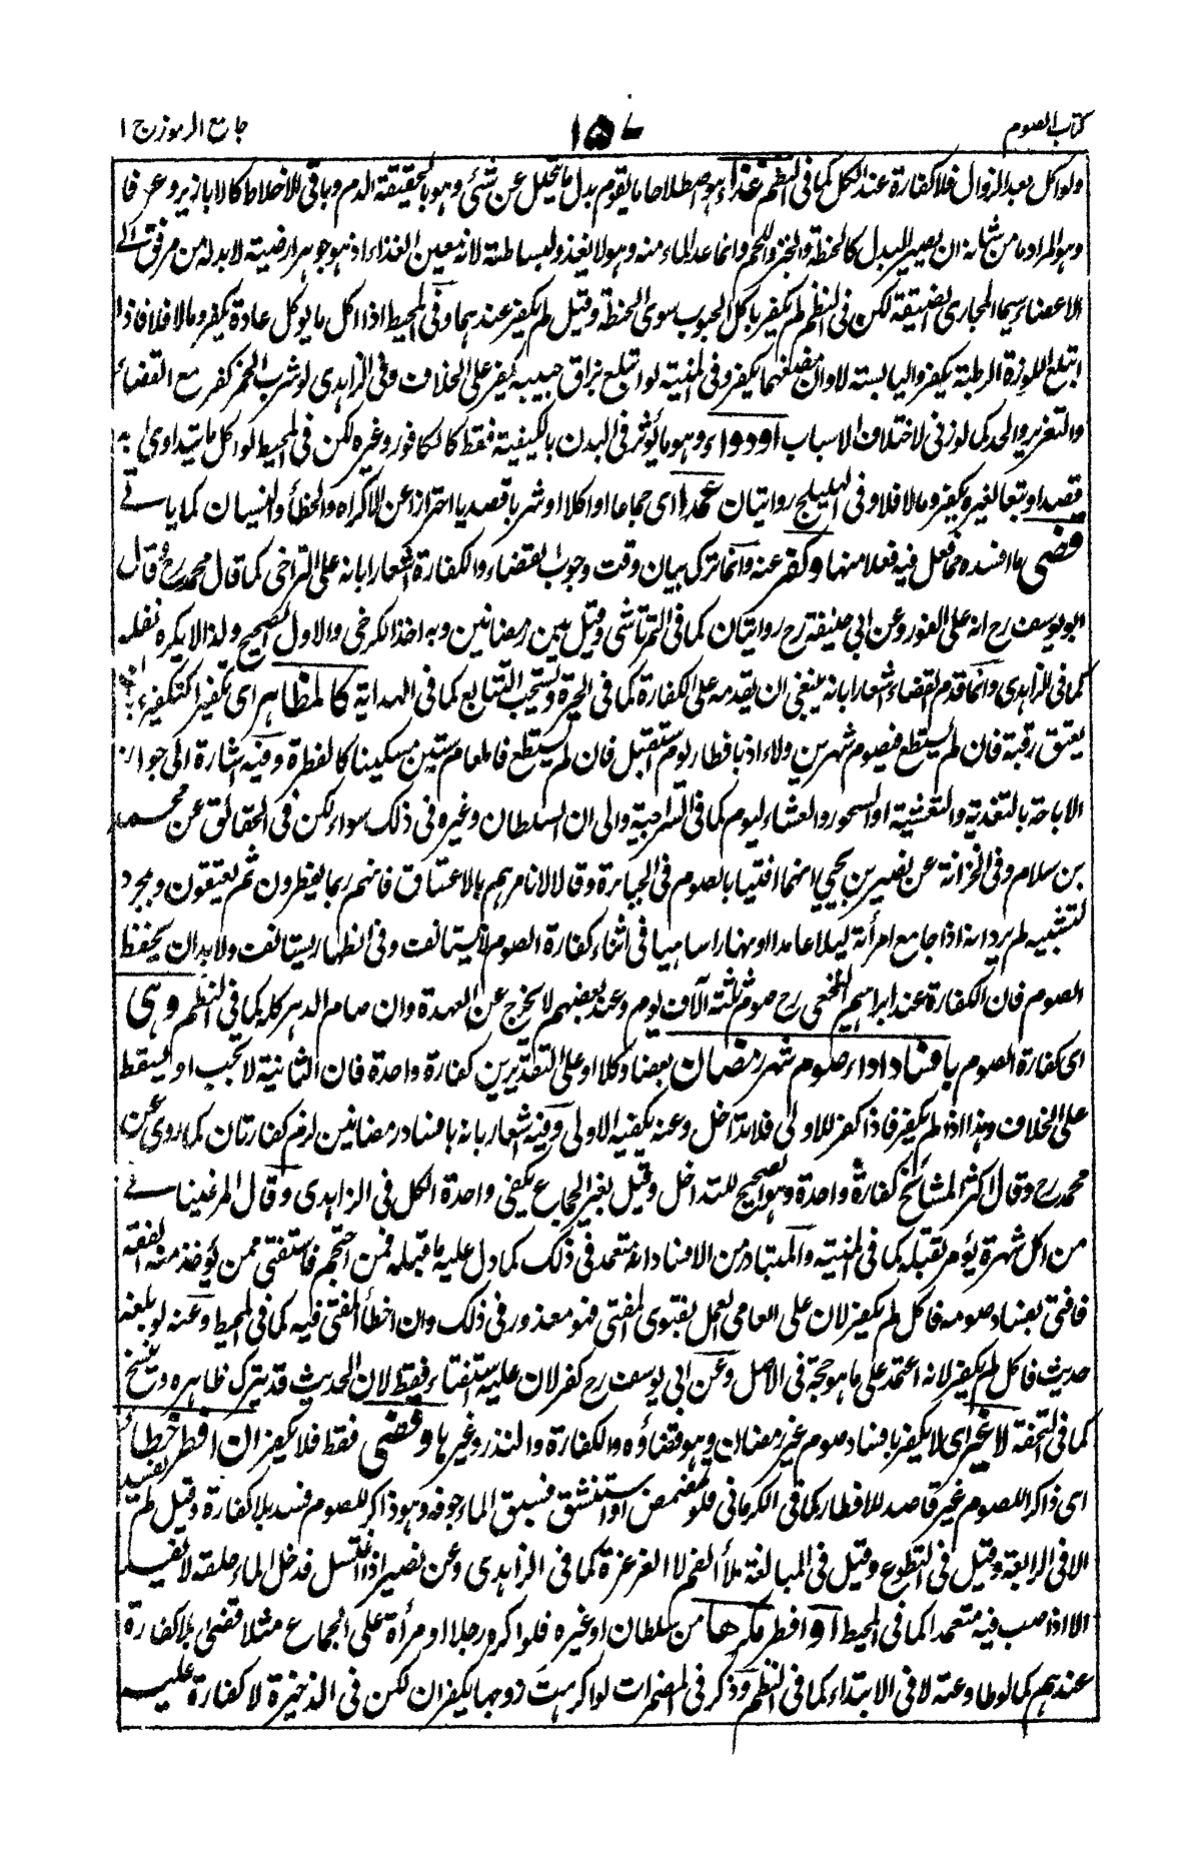 كتاب الصوم
١٥٧
جامع الرموز ج ١
ولو اكل بعد الزوال فلا كفارة عند الكل كما فى النظم غذاء هو اصطلاحا ما يقوم بدل ما يتحلل عن شئ وهو بالحقيقة الدم وباقى الاخلاط كالابازير وعرفا
وهو المراد ما من شانه ان يصير البدل كالحنطة والخبز واللحم وانما عد الماء منه وهو لا يغذو لبساطته لانه معين الغذاء اذ هو جوهر ارضية لا بد له من مرقق الى
الاعضاء سيما المجارى الضيقة لكن فى النظم لم يكفر باكل الحبوب سوى الحنطة وقيل لم يكفر عندهما وفى المحيط اذا اكل ما يوكل عادة يكفر وما لا فلا فاذا
ابتلع اللوزة الرطبة يكفر واليابسة لا وان مضغهما يكفر وفى المنية لو ابتلع بزاق حبيبه كفر على الخلاف وفى الزاهدى لو شرب الخمر كفر مع القضاء
والتعزير والحد كما لو زنى لاختلاف الاسباب او دواء وهو ما يؤثر فى البدن بالكيفية فقط كالكافور وغيره لكن فى المحيط لو اكل ما يتداوى به
قصدا او تبعا لغيره يكفر وما لا فلا وفى الهليلج روايتان عمدا اى جماعا او اكلا او شربا قصديا احترازا عن الاكراه والخطأ والنسيان كما ياتى
قضى ما افسده مما فعل فيه فعلا منها وكفر عنه وانما ترك بيان وقت وجوب القضاء والكفارة اشعارا بانه على التراخى كما قال محمد رح وقال
ابو يوسف رح انه على الفور وعن ابى حنيفة رح روايتان كما فى التمرتاشى وقيل بين رمضانين وبه اخذ الكرخى والاول الصحيح ولذا لا يكره نفله
كما فى الزاهدى وانما قدم القضاء اشعارا بانه ينبغى ان يقدمه على الكفارة كما فى الحيرة ويستحب التتابع كما فى الهداية كالمظاهر اى تكفيرا كتكفيره
يعتق رقبة فان لم يستطع فيصوم شهرين ولاء اذ بافطار يوم استقبل فان لم يستطع فاطعام ستين مسكينا كالفطرة وفيه اشارة الى جواز
الاباحة بالتغذية والتعشية او السحور والعشاء ليوم كما فى السراجية والى ان السلطان وغيره فى ذلك سواء لكن فى الحقائق عن محمد
بن سلام وفى الخزانة عن نصير بن يحيى انهما افتيا بالصوم فى الجبابرة وقالا لا نامرهم بالاعتاق فانهم ربما يفطرون ثم يعتقون وبمجرد
التشبيه لم يرد انه اذا جامع امرأته ليلا عامدا او نهارا ساهيا فى اثناء كفارة الصوم لا يستانف وفى الظهار يستانف ولا بد ان يحفظ
الصوم فان الكفارة عند ابراهيم النخعى رح صوم ثلثة آلاف يوم وعند بعضهم لا يخرج عن العهدة وان صام الدهر كله كما فى النظم وهى
اى كفارة الصوم بافساد اداء صوم شهر رمضان بعضا وكلا وعلى التقديرين كفارة واحدة فان الثانية لا تجب او يسقط
على الخلاف وهذا اذا لم يكفر فاذا كفر للاولى فلا تداخل وعنه يكفيه الاولى وفيه اشعار بانه بافساد رمضانين لزم كفارتان كما روى عن
محمد رح وقال اكثر المشائخ كفارة واحدة وهو الصحيح للتداخل وقيل بغير الجماع يكفى واحدة الكل فى الزاهدى وقال المرغينانى
من اكل شهرة يؤمر بقتله كما فى المنية والمتبادر من الافساد انه متعمد فى ذلك كما دل عليه ما قبله فمن احتجم فاستفتى ممن يؤخذ منه الفقه
فافتى بفساد صومه فاكل لم يكفر لان على العامى العمل بفتوى المفتى فهو معذور فى ذلك وان اخطأ المفتى فيه كما فى المحيط وعنه لو بلغه
حديث فاكل لم يكفر لانه اعتمد على ما هو حجة فى الاصل وعن ابى يوسف رح كفر لان عليه استفتاء فقط لان الحديث قد يترك ظاهره وينسخ
كما فى التحفة لا غير اى لا يكفر بافساد صوم غير رمضان وهو قضاؤه والكفارة والنذر وغيرها وقضى فقط فلا يكفر ان افطر خطاء
اى ذاكرا للصوم غير قاصد للافطار كما فى الكرمانى فلو تمضمض او استنشق فسبق الماء جوفه وهو ذاكر للصوم فسد بلا كفارة وقيل لم يفسد
الا فى الرابعة وقيل فى التطوع وقيل فى المبالغة ملأ الفم لا الغرغرة كما فى الزاهدى وعن نصير اذا اغتسل فدخل الماء حلقه لا يفسد
الا اذا صب فيه متعمدا كما فى المحيط او افطر مكرها من سلطان او غيره فلو اكره رجلا او مرأة على الجماع مثلا قضى بلا كفارة
عندهم كما لو طاوعته لا فى الابتداء كما فى النظم وذكر فى المضمرات لو اكرهت زوجها يكفران لكن فى الذخيرة لا كفارة عليه